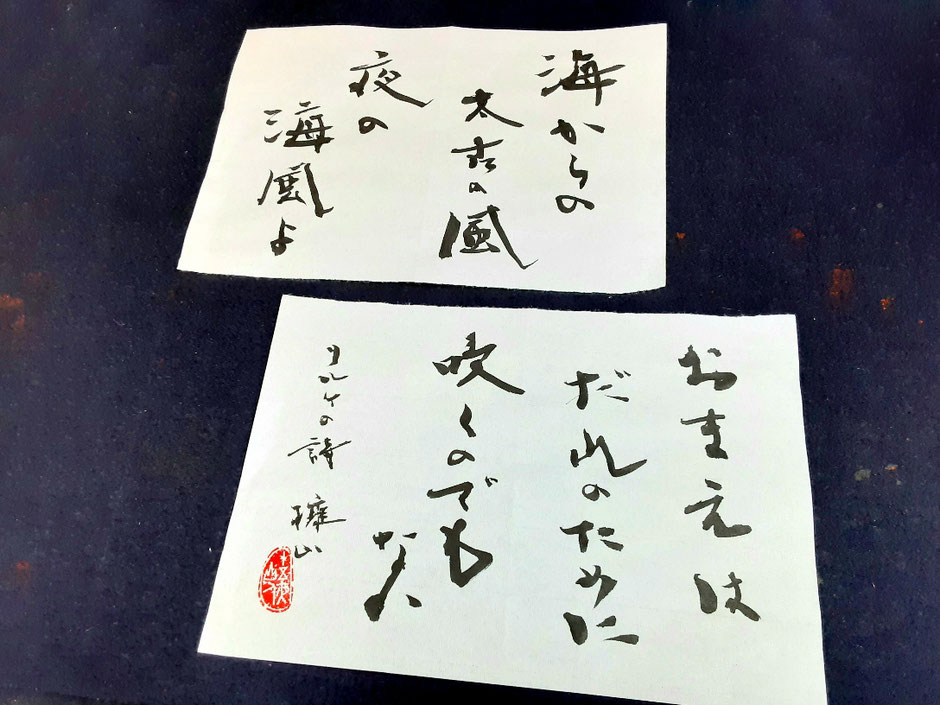 海からの
太古の風
夜の
海風よ
おまえは
だれのために
吹くのでも
ない
リルケの詩
擁山